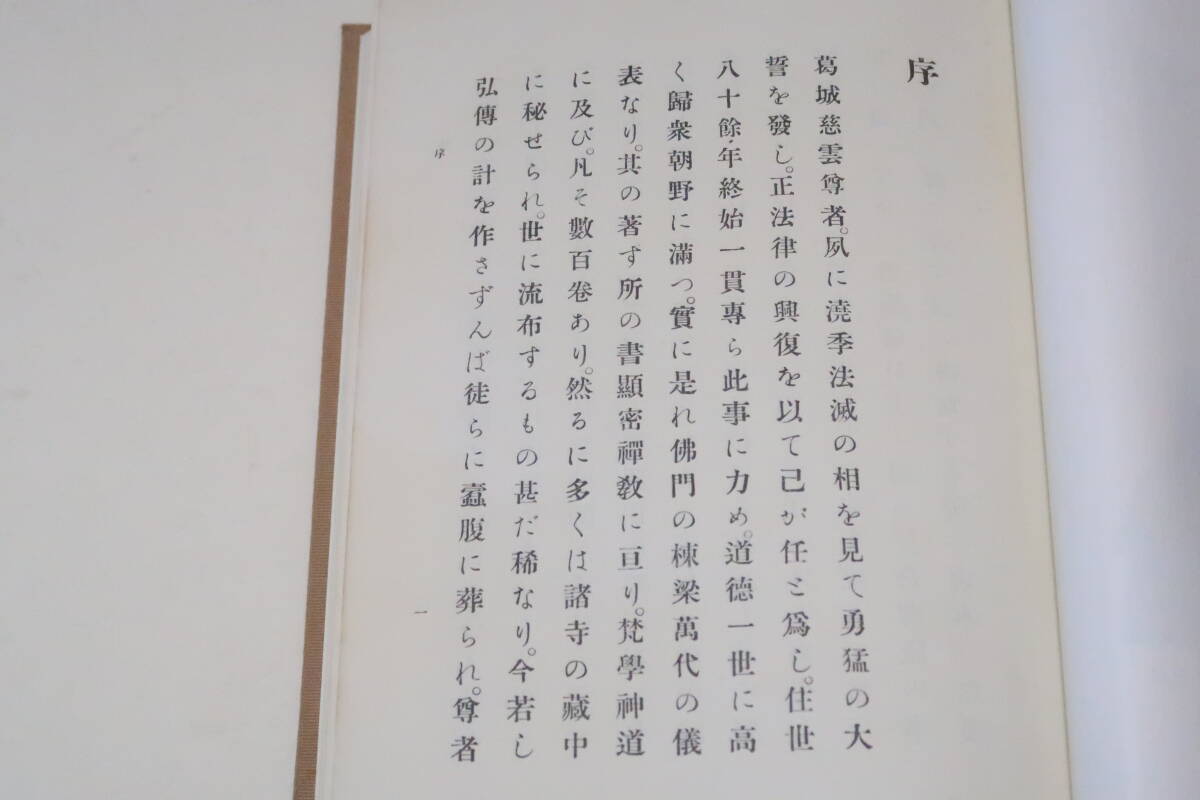 序
葛城慈雲尊者。夙に澆季法滅の相を見て勇猛の大
誓を發し。正法律の興復を以て己が任と爲し。住世
八十餘年終始一貫專ら此事に力め。道德一世に高
く歸衆朝野に滿つ。實に是れ佛門の棟梁萬代の儀
表なり。其の著す所の書顯密禪敎に亘り。梵學神道
に及び。凡そ數百卷あり。然るに多くは諸寺の藏中
に秘せられ。世に流布するもの甚だ稀なり。今若し
弘傳の計を作さずんば徒らに蠧腹に葬られ。尊者
序
一